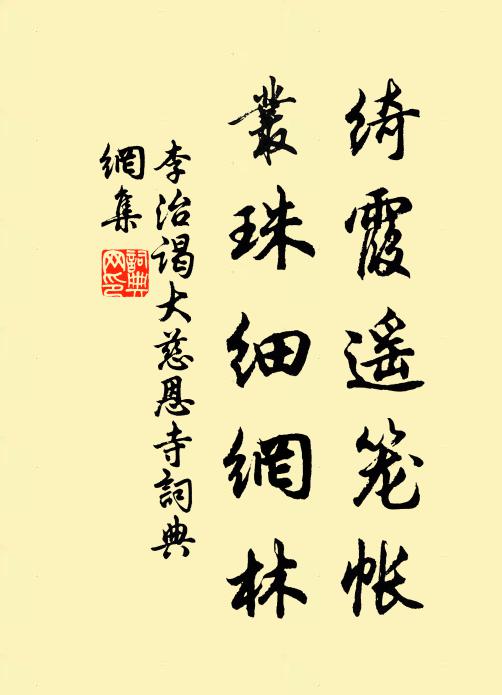 绮霞遥笼帐
叢珠细網林
李治谒大慈恩寺詞典
網集
詞典
网印